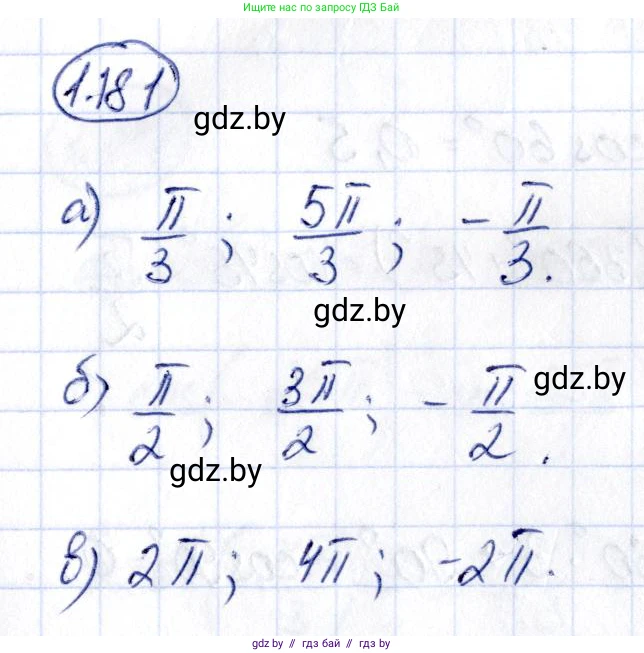 Ищите нас по запросу ГДЗ Бай
1.181
gdz.by
а) π/3 ; 5π/3 ; - π/3 .
gdz.by
б) π/2 ; 3π/2 ; - π/2 .
gdz.by
gdz.by
в) 2π ; 4π ; -2π.
gdz.by // гдз бай // гдз by